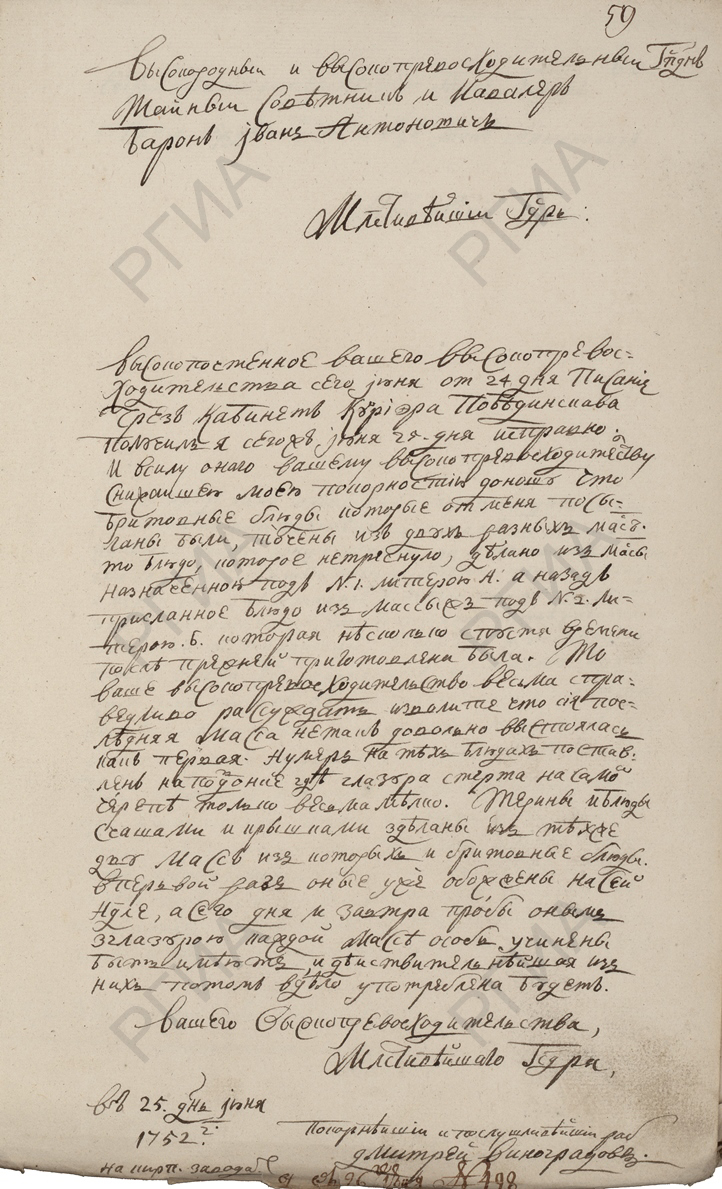 59
Высокородныи и высокопревосходителныи Гднъ
Таиныи Совѣтникъ и Кавалеръ
Баронъ Іванъ Антоновичъ
Млстивѣишіи Гдрь:
высокопочтенное вашего высокопревос=
ходительства сего іюня от 24 дня Писаніе
Чрезъ Кабинетъ Курїэра Побѣдинскава
получилъ я сегожъ іюня 25. дня исправно.
И всилу онаго вашему высокопревосходителству
Снижаишею моею покорностию доношу что
бритовные блюды которые от меня посы=
ланы были, точены изъ двухъ разныхъ массъ.
то блюдо, которое нетреснуло, дѣлано изъ массы
назначенною подъ N. 1. литерою А: а назадъ
присланное блюдо изъ массы жъ подъ N. 2. ли=
терою. Б. которая нѣсколько спустя времени
послѣ прежней приготовлена была. Что
ваше высокопревосходительство весьма спра=
ведливо разсуждать изволите что сія пос=
лѣдняя масса нетакъ довольно выстоялась
какъ первая. Нумеръ на тѣхъ блюдахъ постав=
ленъ на подоніе гдѣ глазура стерта на самой
черепѣ только весьма мѣлко. Терины и блюды
счашами и крышками здѣланы изъ тѣхже
двухъ массъ изъ которыхъ и бритовные блюды.
впервой разъ оные уже обожжены на сей
Н͠дле, а сего дня и завтра пробы онымъ
зглазурою каждой массѣ особь учинены
быть имѣютъ, и дѣиствительнѣишая изъ
нихъ потомъ вдѣло употреблена будетъ.
вашего Высокопревосходительства,
Млстивѣишаго Гдря,
въ 25. днь іюня
1752 г:
на кирп. завода͠х
Покорнѣишіи и послушливѣишіи раб
Дмитреи Виноградовъ.
N 498
РГИА
РГИА
РГИА
РГИА
РГИА
РГИА